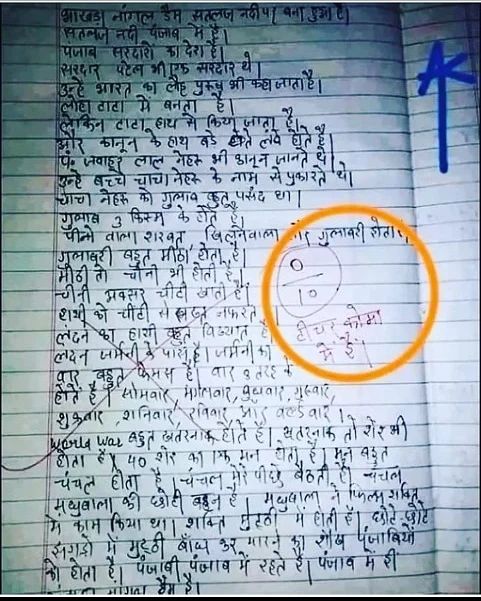 भाखड़ा नांगल डैम सतलज नदी पर बना हुआ है।
सतलज नदी पंजाब में है।
पंजाब सरदारों का देश है।
सरदार पटेल भी एक सरदार थे।
उन्हें भारत का लौह पुरूष भी कहा जाता है।
लोहा टाटा में बनता है।
लेकिन टाटा हाथ से किया जाता है।
और कानून के हाथ बड़े होते लंबे होते है
पं. जवाहर लाल नेहरू भी कानून जानते थे।
उन्हे बच्चे चाचा नेहरू के नाम से पुकारते थे।
चाचा नेहरू को गुलाब बहुत पसंद था।
गुलाब 3 किस्म के होते है।
पीने वाला शरबत, खिलनेवाला और गुलाबरी होता
गुलाबरी बहुत मीठा होता है।
मीठी तो चीनी भी होती है।
चीनी अक्सर चींटी खाती है
हाथी को चींटी से सख्त नफरत
लंदन का हाथी बहुत विख्यात है
लंदन जर्मनी के पास है। जर्मनी का
वार बहुत फेमस है। वार 3 तरह के
होते है। सोमवार, मंगलवार, बुधवार, गुरूवार,
शुक्रवार, शनिवार, रविवार और वर्ल्ड वार।
World War बहुत खतरनाक होते है। खतरनाक तो शेर भी
होता है। 40 शेर का एक मन होता है। मन बहुत
चंचल होता है। चंचल मेरे पीछे बैठती है। चंचल
मधुबाला की छोटी बहन है। मधुबाला ने फिल्म शक्ति
मे काम किया था। शक्ति मुठ्ठी में होती है। छोटे छोटे
झगड़ो में मुठ्ठी बाँध कर मारने का शौख पंजाबियो
को होता है। पंजाबी पंजाब में रहते है। पंजाब में ही
नांगल डैम है।
0
10
टीचर कोमा
में है।
AK